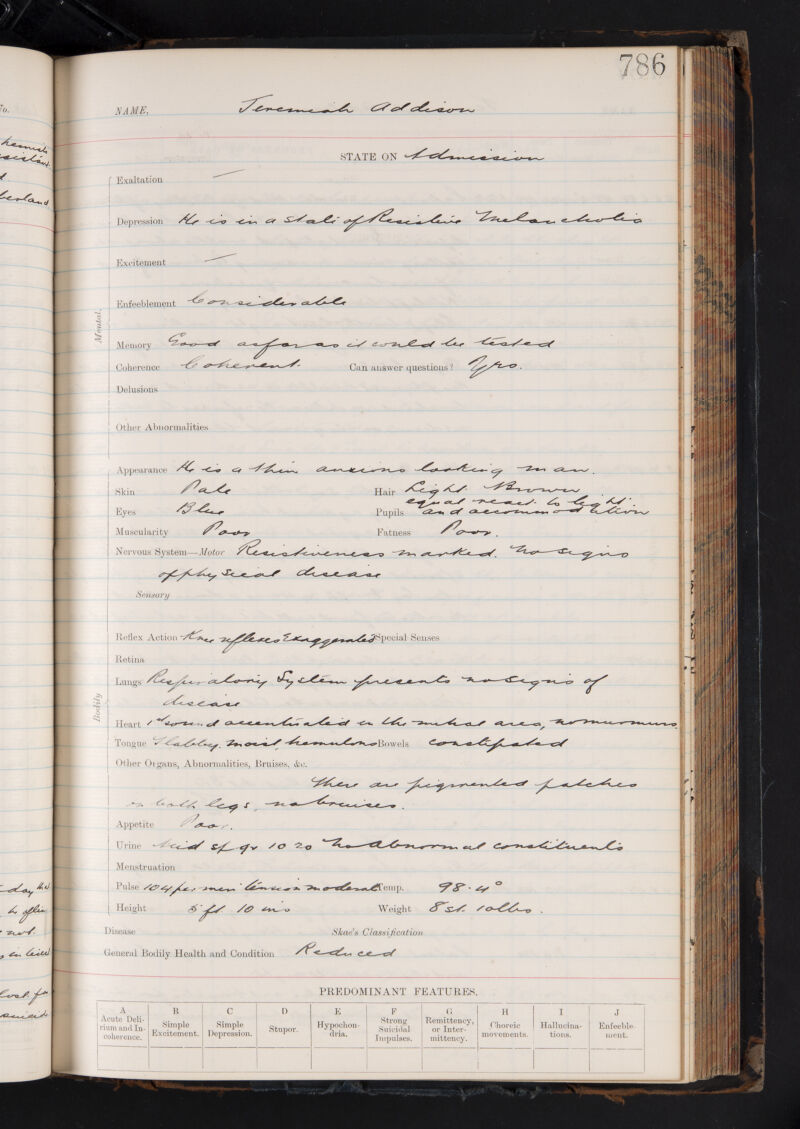 786
NAME, Jeremiah Addison
STATE ON Admission
Exaltation —
Depression He is in a state of Resistive Melancholia
Excitement —
Mental.
Enfeeblement Considerable
Memory Good as far as it could be tested
Coherence Coherent. Can answer questions? Yes.
Delusions
Other Abnormalities
Appearance He is a thin anxious looking man.
Skin Pale Hair Light Brown
Eyes Blue Pupils equal react to light and accommodation
Muscularity Poor Fatness Poor.
Nervous System—Motor Resistiveness marked. No signs
of physical disease
Sensory
Reflex Action Knee reflexes Exaggerated Special Senses
Retina
Lungs Respiratory System presents no signs of
disease
Bodily
Heart 1st sound accentuated in the mitral area, no murmurs
Tongue Flabby, moist, tremulous Bowels constipated
Other Organs, Abnormalities, Bruises, &c.
There are pigmented patches
on both legs, no bruises.
Appetite Poor.
Urine Acid sp gr 1020 No abnormal constituents
Menstruation
Pulse 104 per min tension moderate Temp. 98.4°
Height 5 ft 10 ins Weight 8 st. 10 lbs.
Disease Skae's Classification
General Bodily Health and Condition Reduced
PREDOMINANT FEATURES.
A B C D E F G H I J
Acute Delirium and Incoherence. Simple Excitement. Simple Depression. Stupor. Hypochondria. Strong Suicidal Impulses. Remittency, or Intermittency. Choreic movements. Hallucinations. Enfeeblement.